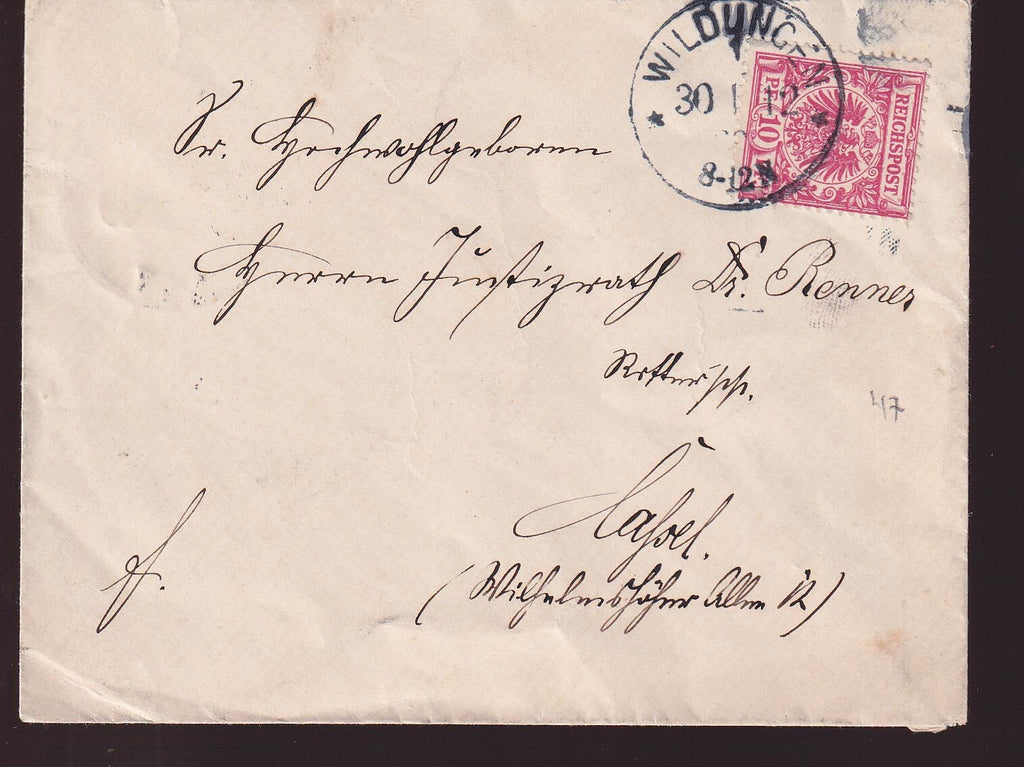 WILDUNGEN
30 1 12
8-12 N
REICHSPOST
10
Sr. Hochwohlgeboren
Herrn Justizrath Dr. Renner
47
Cassel.
f.
(Wilhelmshöher Allee 12)